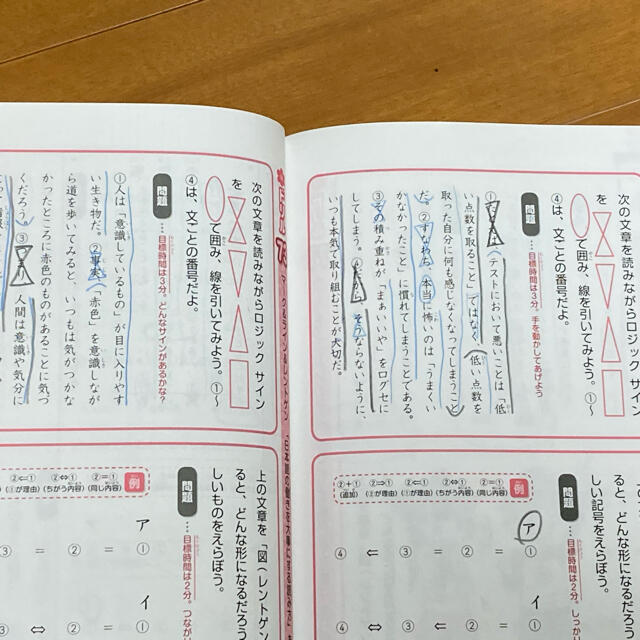 次の文章を読みながらロジック サイン
を
で囲み、線を引いてみよう。①〜
④は、文ごとの番号だよ。
問題
…目標時間は3分。手を動かしてあげよう
テストにおいて悪いことは「低
い点数を取ること」ではなく、「低い点数を
取った自分に何も感じなくなってしまうこと
だ。②すなわち、本当に怖いのは「うまくい
かなかったこと」に慣れてしまうことである。
③その積み重ねが「まぁいいや」をログセに
してしまう。④だから、そうならないように、
いつも本気で取り組むことが大切だ。
しい記号をえらぼう。
問題
例
②=① (同じ内容)
②⇔① (ちがう内容)
②⇐① (①が理由)
②⇒① (②が理由)
②+① (追加)
ア
① = ② = ③ ⇐ ④
イ
マーク&ライン&レントゲン
次の文章を読みながらロジック サイン
を
で囲み、線を引いてみよう。①〜
④は、文ごとの番号だよ。
問題
…目標時間は3分。どんなサインがあるかな?
①人は「意識しているもの」が目に入りやす
い生き物だ。②事実、「赤色」を意識しなが
ら道を歩いてみると、いつもは気がつかな
かったところに赤色のものがあることに気づ
くだろう。③
人間は意識や気分に
上の文章を「図(レントゲン
ると、どんな形になるだろう
しいものをえらぼう。
問題
…目標時間は2分。
例
②=① (同じ内容)
②⇔① (ちがう内容)
②⇐① (①が理由)
ア
① = ② = ③
イ
① = ② ⇔ ③